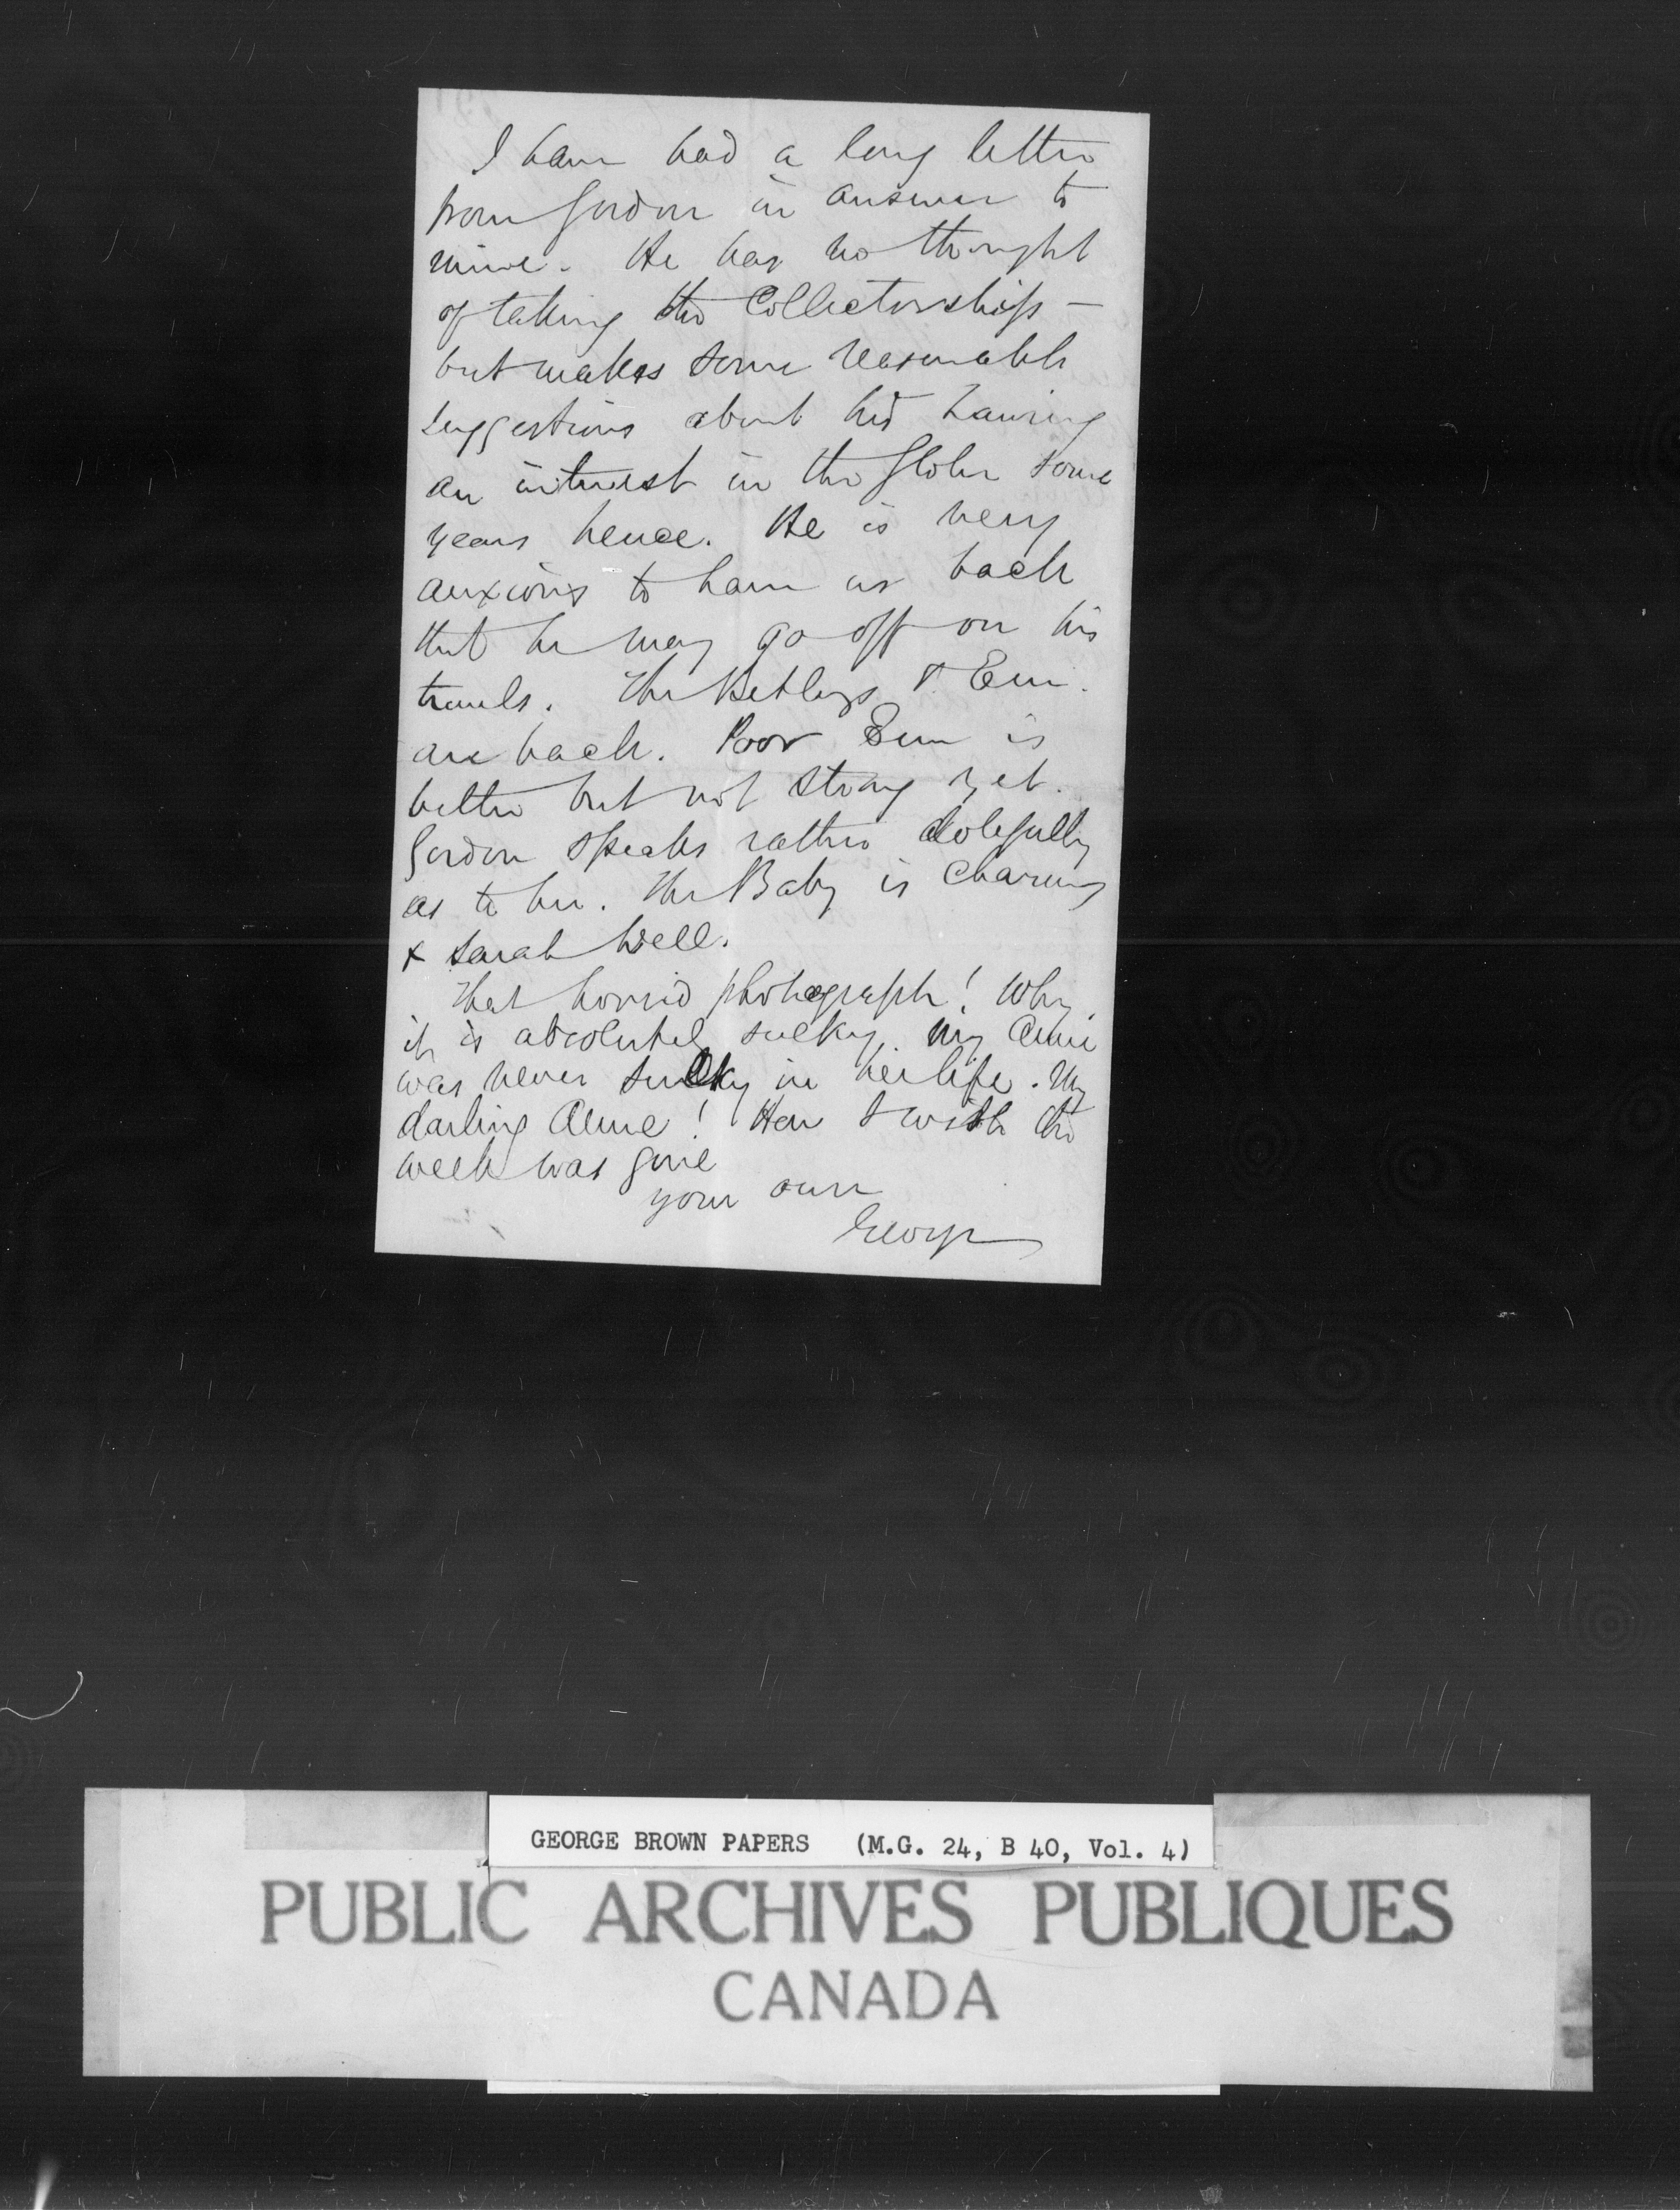 I have had a long letter
from Gordon in answer to
mine. He has no thought
of taking the Collectorship –
but makes some reasonable
suggestions about his having
an interest in the Globe some
years hence. He is very
anxious to have us back
that he may go off on his
travels. The & Em.
are back. Poor Em is
better but not strong yet.
Gordon speaks rather dolefully
as to her. The Baby is charming
& Sarah well.
That horrid photograph! Why
it is absolutely sulky. My Anne
was never sulky in her life. My
darling Anne! How I wish the
week was gone
your own
George
GEORGE BROWN PAPERS (M.G. 24, B 40, Vol. 4)
PUBLIC ARCHIVES PUBLIQUES
CANADA